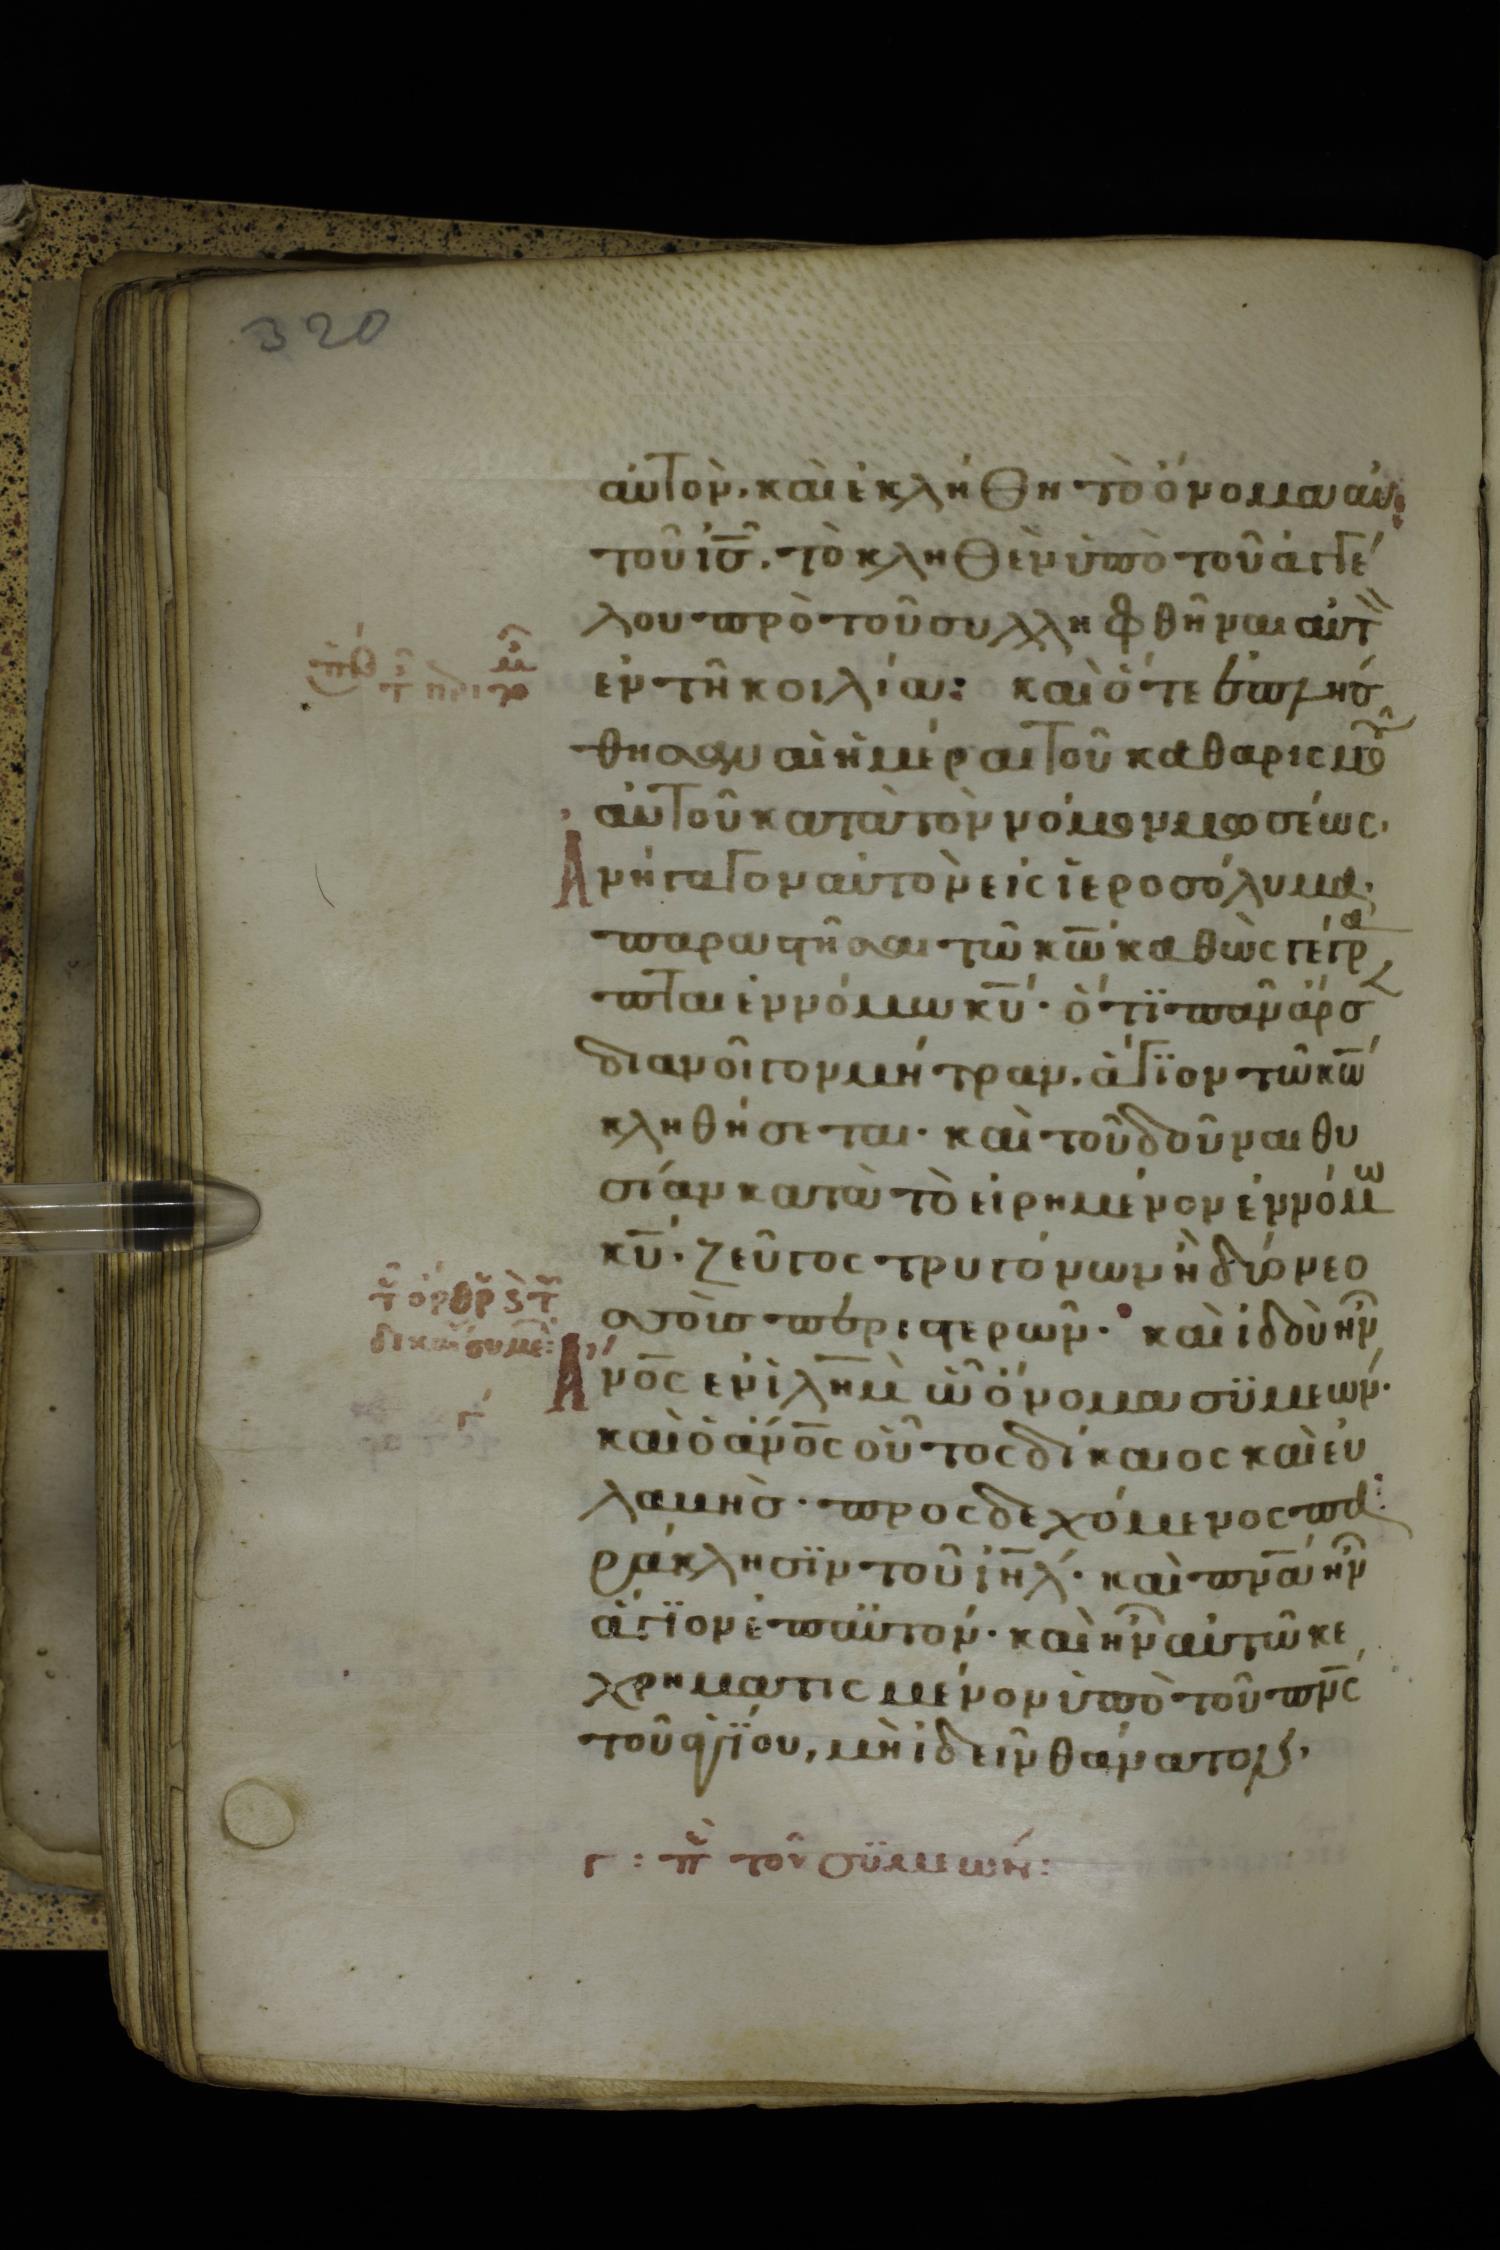 320
αὐτὸν· καὶ ἐκλήθη τὸ ὄνομα αὐ
τοῦ ἰς̅. τὸ κληθὲν ὑπὸ τοῦ ἀγγέ
λου πρὸ τοῦ συλληφθῆναι αὐτ
ἐν τῆ κοιλία: καὶ ὅτε ἐπλήσ
θησαν αἱ ἡμέραι τοῦ καθαρισμοῦ
αὐτοῦ κατὰ τὸν νόμον μωσέως.
Ἀνήγαγον αὐτὸν εἰς ἱεροσόλυμα,
παραστῆσαι τῶ κω̅ καθὼς γέγρα
πται ἐν νόμω κυ̅· ὅτϊ πᾶν ἄρσ
διανοῖγον μήτραν. ἅγϊον τῶ κω̅
κληθήσεται· καὶ τοῦ δοῦναι θυ
σίαν κατὰ τὸ εἰρημένον ἐν νόμω
κυ̅· ζεῦγος τρυγόνων ἢ δύο νεο
σσοὺς περιστερῶν· καὶ ἰδοὺ ἦν
Ἄνο̅ς ἐν ἰλη̅μ ὧ ὄνομα συϊμεών·
καὶ ὁ ἄνο̅ς οὗτος δίκαιος καὶ εὐ
λαμὴσ· προσδεχόμενος πα
ράκλησϊν τοῦ ἰη̅λ· καὶ πνα̅ ἦν
ἅγϊον ἐπαϋτόν· καὶ ἦν αὐτῶ κε
χρηματισμένον ὑπὸ τοῦ πν̅ς
τοῦ ἁγϊου, μὴ ἰδεῖν θάνατον,
γ: πε τοῦ συϊμεών: